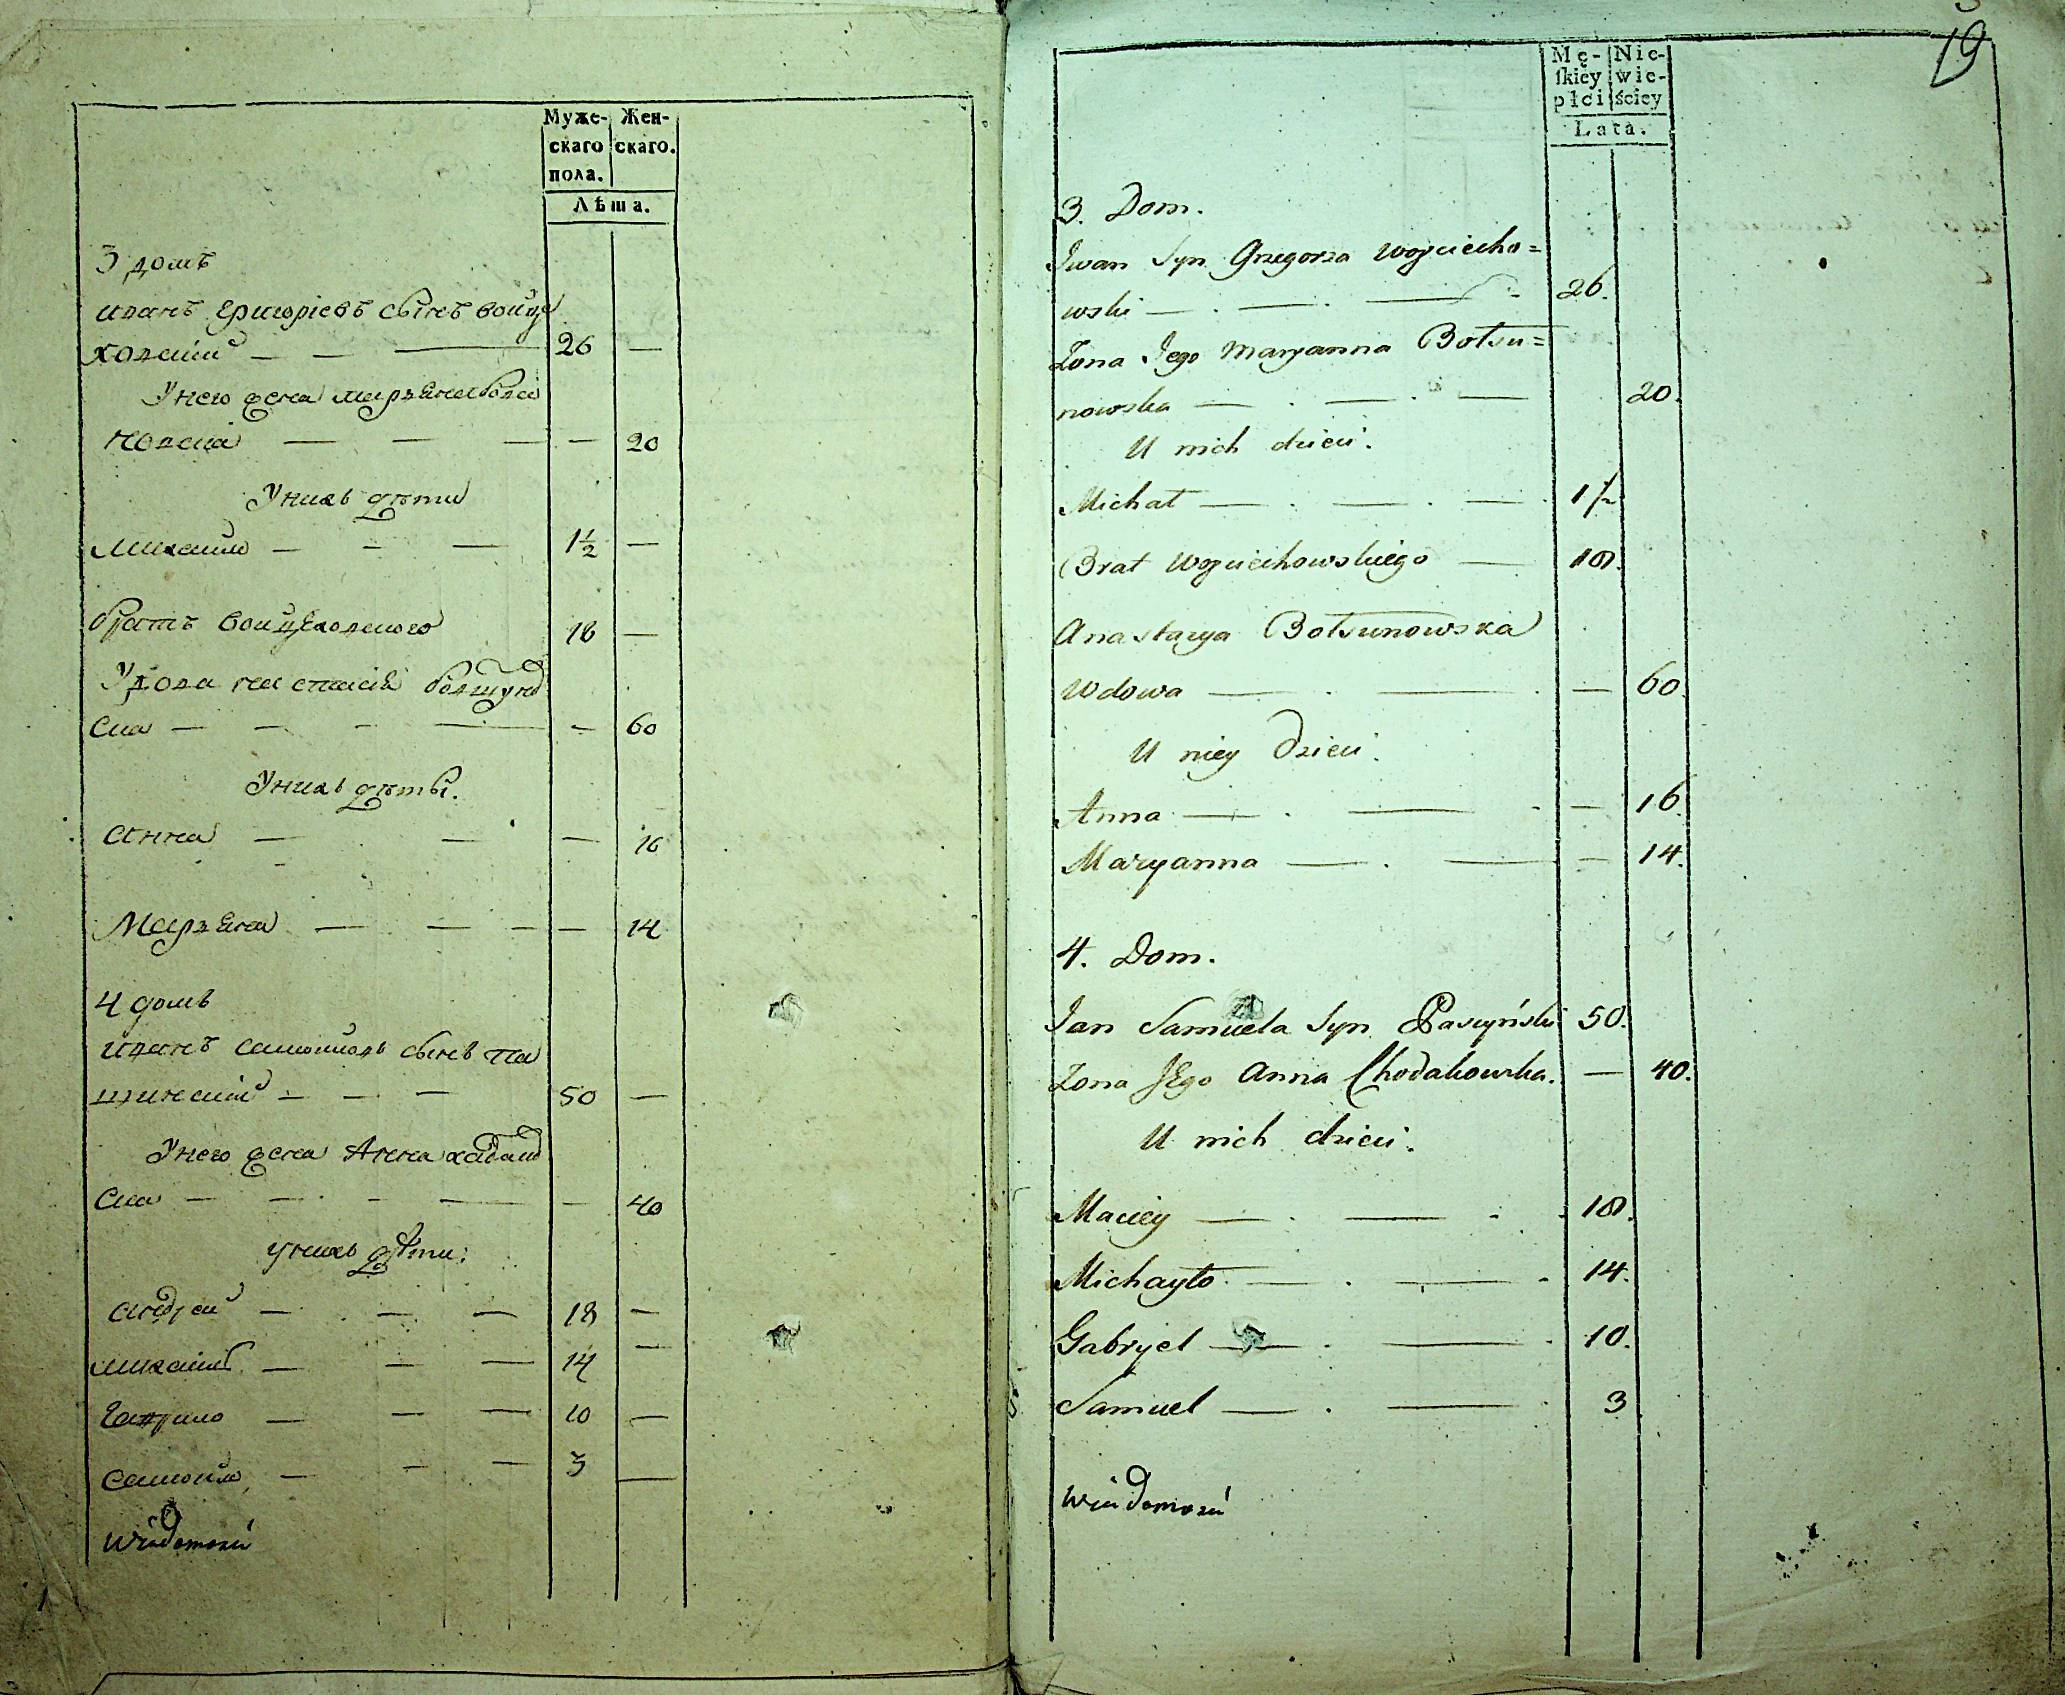 Муже-
скаго
пола.
Жен-
скаго.
Лѣта.
3 домъ
иванъ григорієвъ сынъ войце
ховскій — — — 26 —
Унего жена марьяна болсу
новска — — — — 20
Унихъ дѣти
михайло — — — 1½ —
братъ войцеховского 18 —
Удова настасія болшунов
ска — — — — — 60
Унихъ дѣты.
анна — — — 16
Марьяна — — — — 14
4 домъ
иванъ самойловъ сынъ па
щинскій — — — 50 —
Унего жена Анна хадаков
ска — — — — — 40
унихъ дѣти:
андрей — — — 18 —
михайло — — — 14 —
Гаврило — — — 10 —
самойло — — — 3 —
Wiadomość
19
Mę-
skiey
płci
Nie-
wie-
ściey
Lata.
3. Dom.
Iwan Syn Grzegorza Woyciecho=
wski — . — . — - 26.
Zona Jego Maryanna Bołsu=
nowska — . — . — 20.
U nich dzieci.
Michał — . — . — 1½
Brat Woyciechowskiego — 18.
Anastazya Bołsunowska
Wdowa — . — . — 60.
U niey Dzieci.
Anna — . — . — 16
Maryanna — . — — 14.
4. Dom.
Jan Samuela Syn Paszyński 50.
Zona JEgo Anna Chodakowska. — 40.
U nich dzieci.
Maciey — . — - . 18.
Michayło — . — - 14.
Gabryel — . — . 10.
Samuel — . — 3
Wiadomość